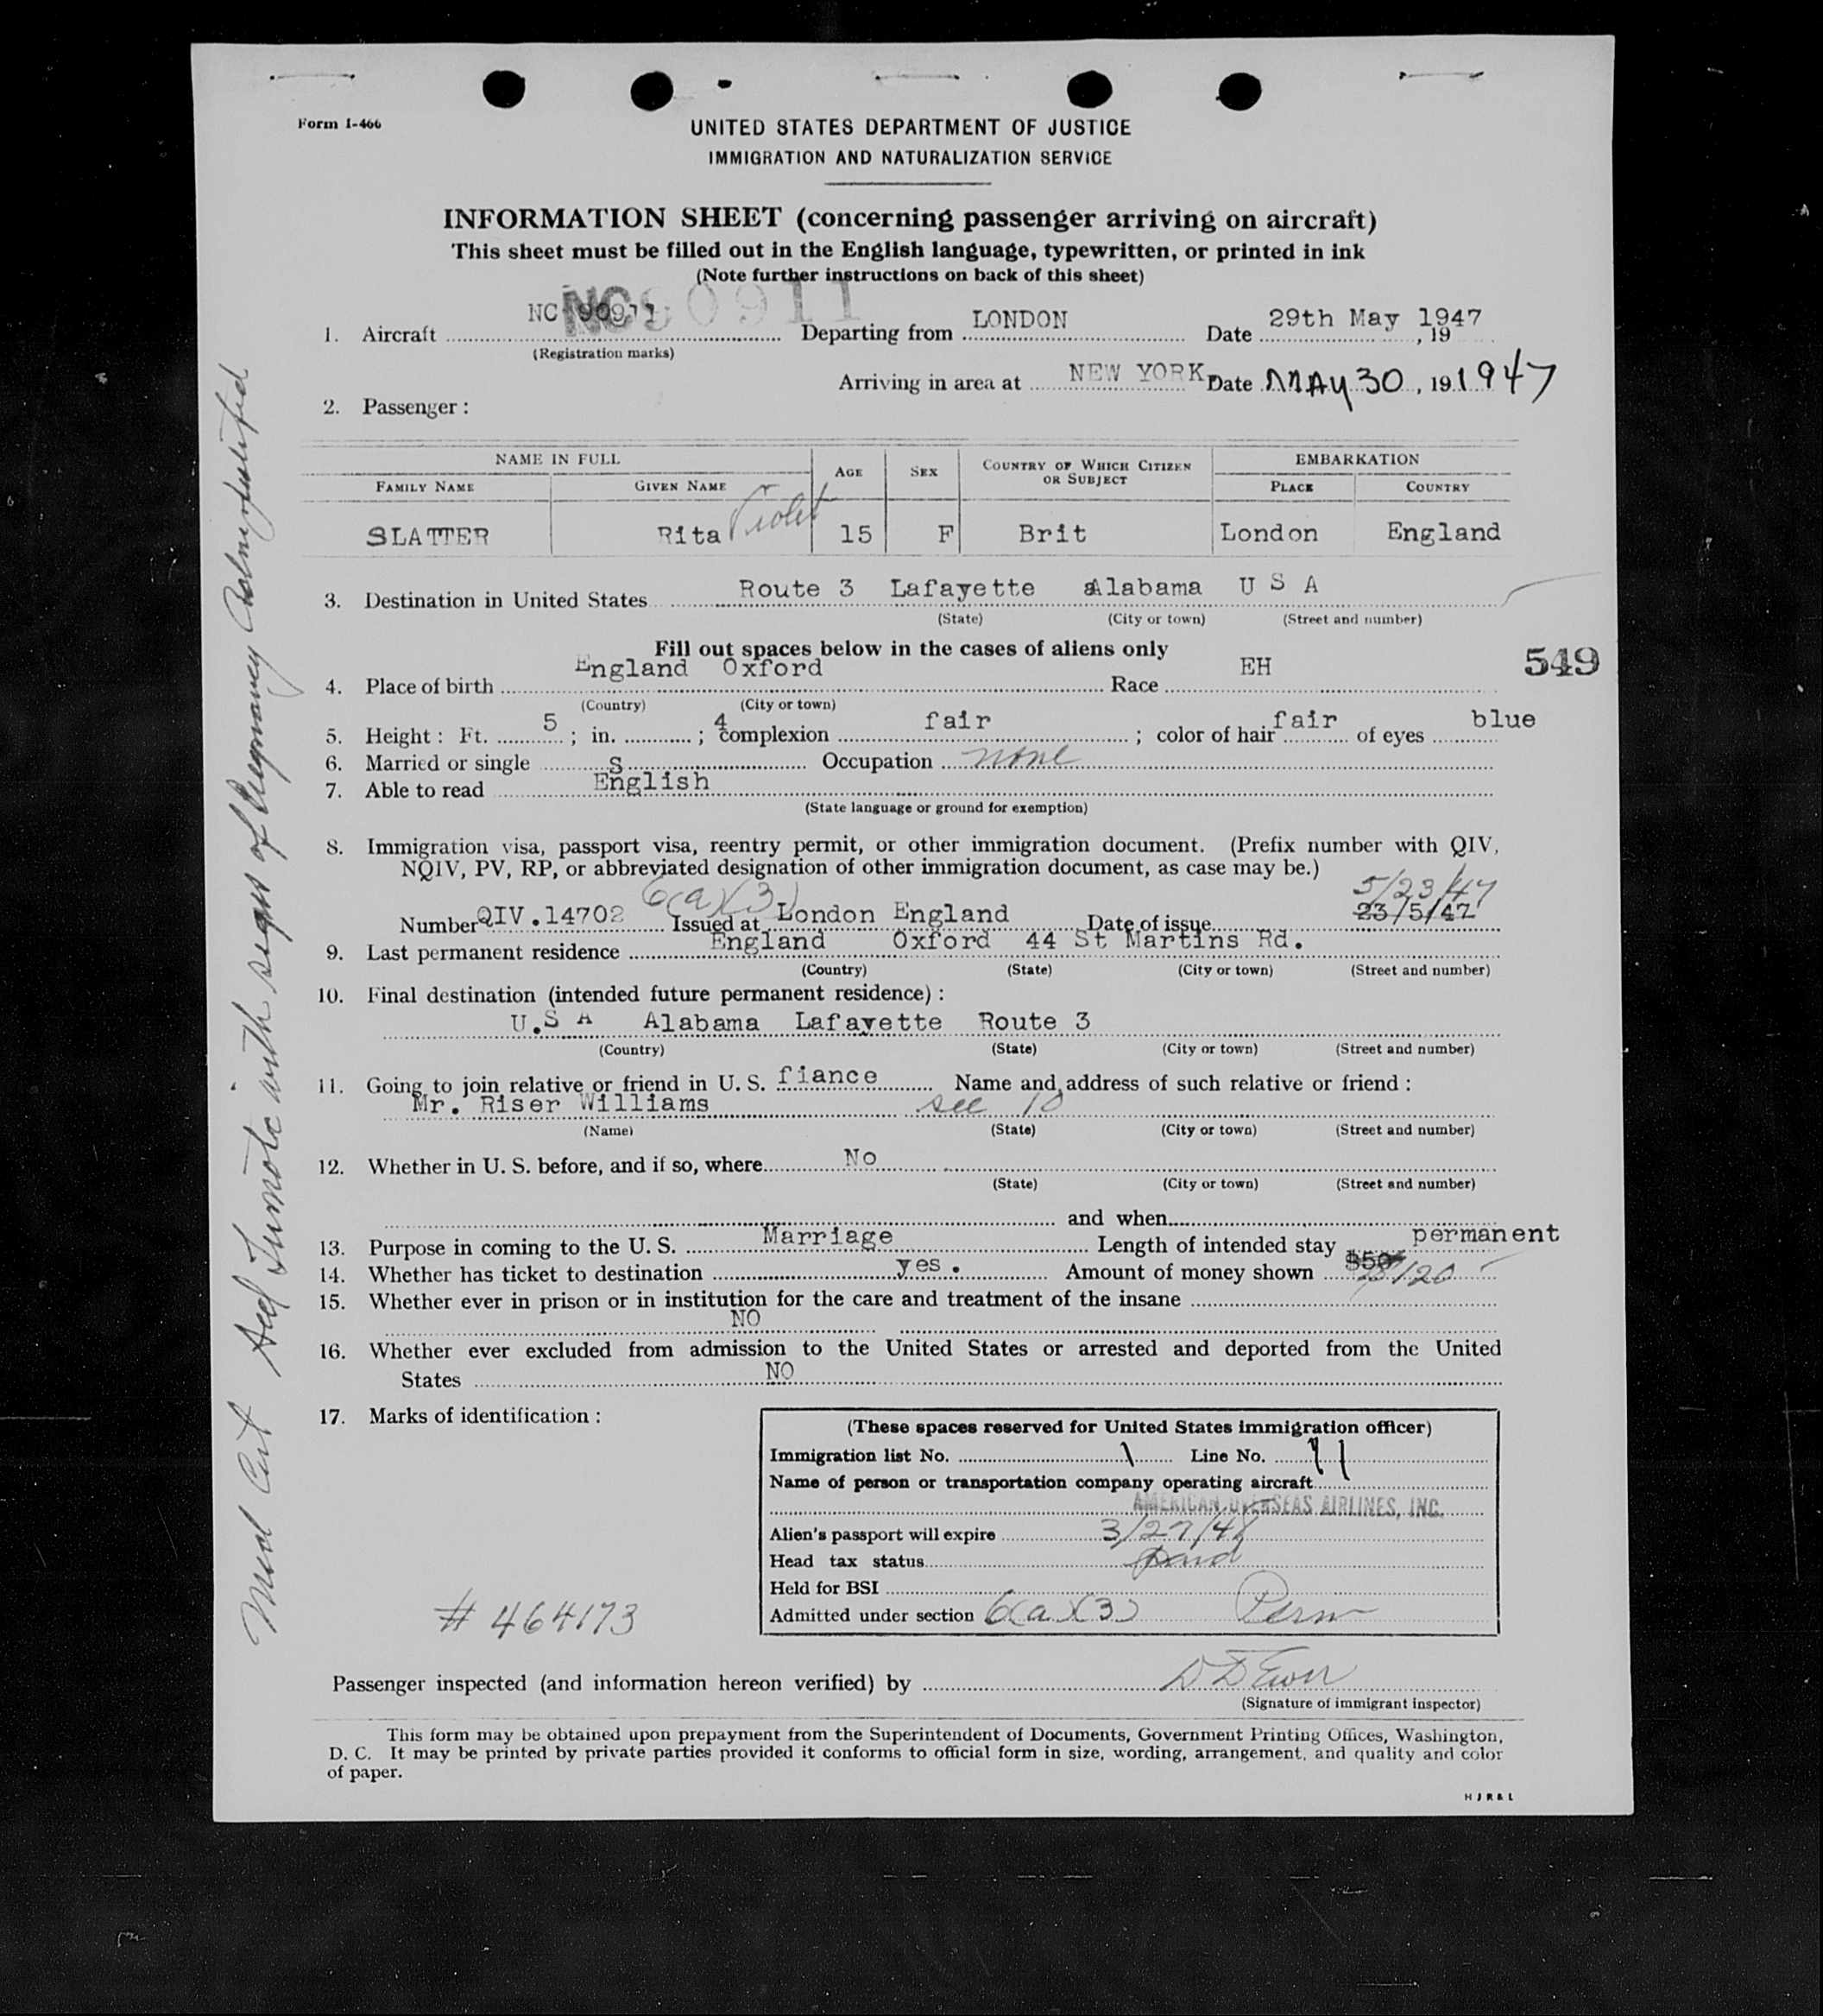 Form I-466
UNITED STATES DEPARTMENT OF JUSTICE
IMMIGRATION AND NATURALIZATION SERVICE
INFORMATION SHEET (concerning passenger arriving on aircraft)
This sheet must be filled out in the English language, typewritten, or printed in ink
(Note further instructions on back of this sheet)
NC90911
1. Aircraft NC 90911 Departing from LONDON Date 29th May 1947, 19
(Registration marks)
Arriving in area at NEW YORK Date MAY 30, 191947
2. Passenger:
NAME IN FULL AGE SEX COUNTRY OF WHICH CITIZEN OR SUBJECT EMBARKATION
FAMILY NAME GIVEN NAME PLACE COUNTRY
SLATTER Rita Violet 15 F Brit London England
3. Destination in United States Route 3 Lafayette Alabama U S A
(State) (City or town) (Street and number)
Fill out spaces below in the cases of aliens only
549
4. Place of birth England Oxford Race EH
(Country) (City or town)
5. Height: Ft. 5; in. 4; complexion fair; color of hair fair of eyes blue
6. Married or single S Occupation none
7. Able to read English
(State language or ground for exemption)
8. Immigration visa, passport visa, reentry permit, or other immigration document. (Prefix number with QIV,
NQIV, PV, RP, or abbreviated designation of other immigration document, as case may be.)
6(a)(3) 5/23/47
Number QIV.14702 Issued at London England Date of issue 23/5/47
9. Last permanent residence England Oxford 44 St Martins Rd.
(Country) (State) (City or town) (Street and number)
10. Final destination (intended future permanent residence):
U.S A Alabama Lafayette Route 3
(Country) (State) (City or town) (Street and number)
11. Going to join relative or friend in U. S. fiance Name and address of such relative or friend:
Mr. Riser Williams see 10
(Name) (State) (City or town) (Street and number)
12. Whether in U. S. before, and if so, where No
(State) (City or town) (Street and number)
and when
13. Purpose in coming to the U. S. Marriage Length of intended stay permanent
14. Whether has ticket to destination yes. Amount of money shown $50 /20
15. Whether ever in prison or in institution for the care and treatment of the insane
NO
16. Whether ever excluded from admission to the United States or arrested and deported from the United
States NO
17. Marks of identification:
# 464173
(These spaces reserved for United States immigration officer)
Immigration list No. 1 Line No. 11
Name of person or transportation company operating aircraft
AMERICAN OVERSEAS AIRLINES, INC.
Alien's passport will expire 3/27/48
Head tax status paid
Held for BSI
Admitted under section 6(a)(3) Perm
Passenger inspected (and information hereon verified) by
(Signature of immigrant inspector)
This form may be obtained upon prepayment from the Superintendent of Documents, Government Printing Offices, Washington,
D. C. It may be printed by private parties provided it conforms to official form in size, wording, arrangement, and quality and color
of paper.
H J R & L
Med Cert with signs of Pregnancy